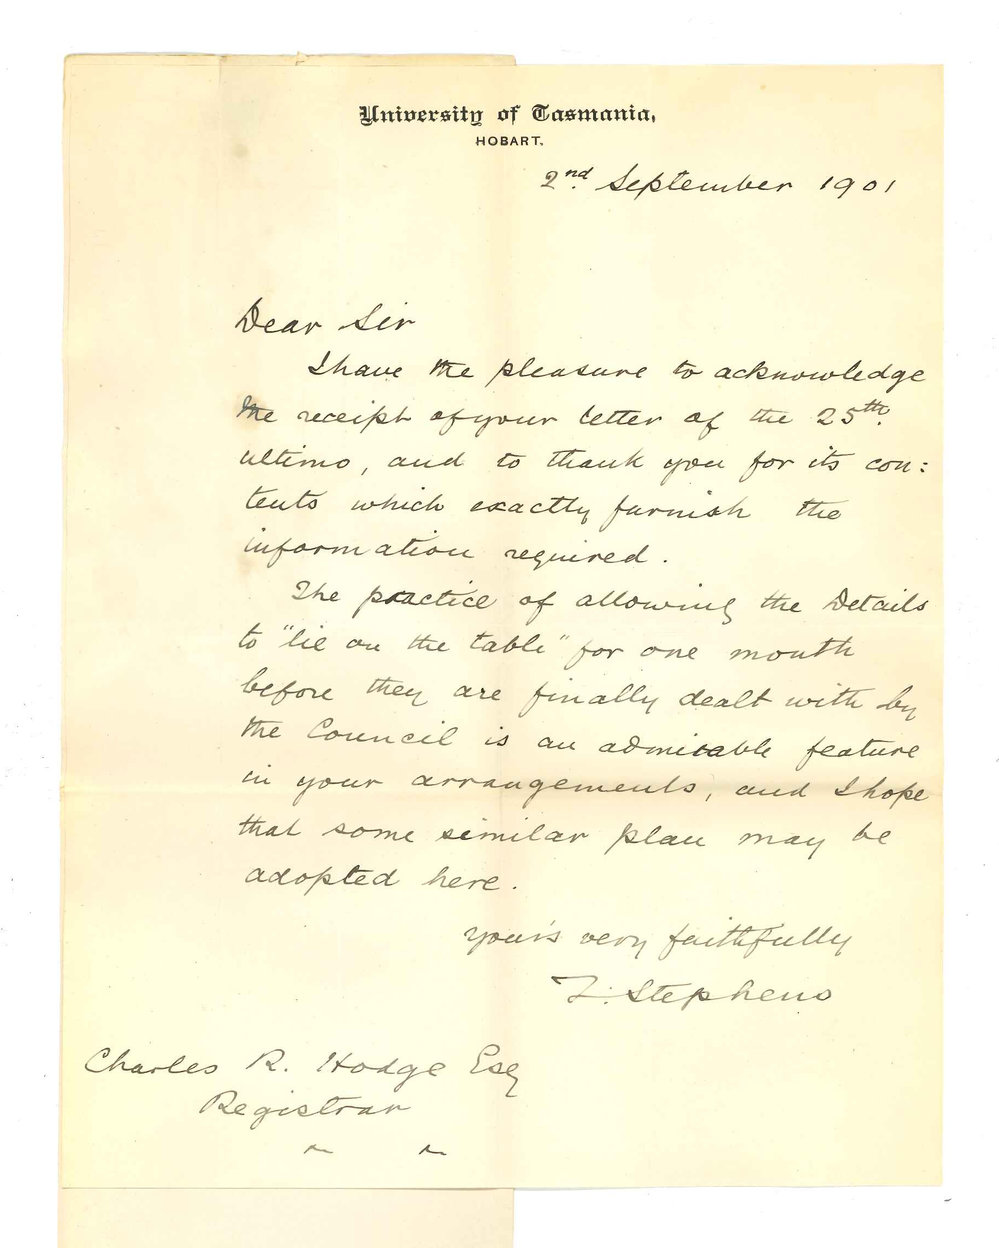 University of Tasmania,
HOBART.
2nd. September 1901
Dear Sir
I have the pleasure to acknowledge
the receipt of your letter of the 25th.
ultimo, and to thank you for its con:
tents which exactly furnish the
information required.
The practice of allowing the Details
to "lie on the table" for one month
before they are finally dealt with by
the Council is an admirable feature
in your arrangements, and I hope
that some similar plan may be
adopted here.
Your's very faithfully
T. Stephens
Charles R. Hodge Esq
Registrar